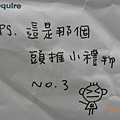 equire
PS. 這是那個
頭推小禮物
NO.3